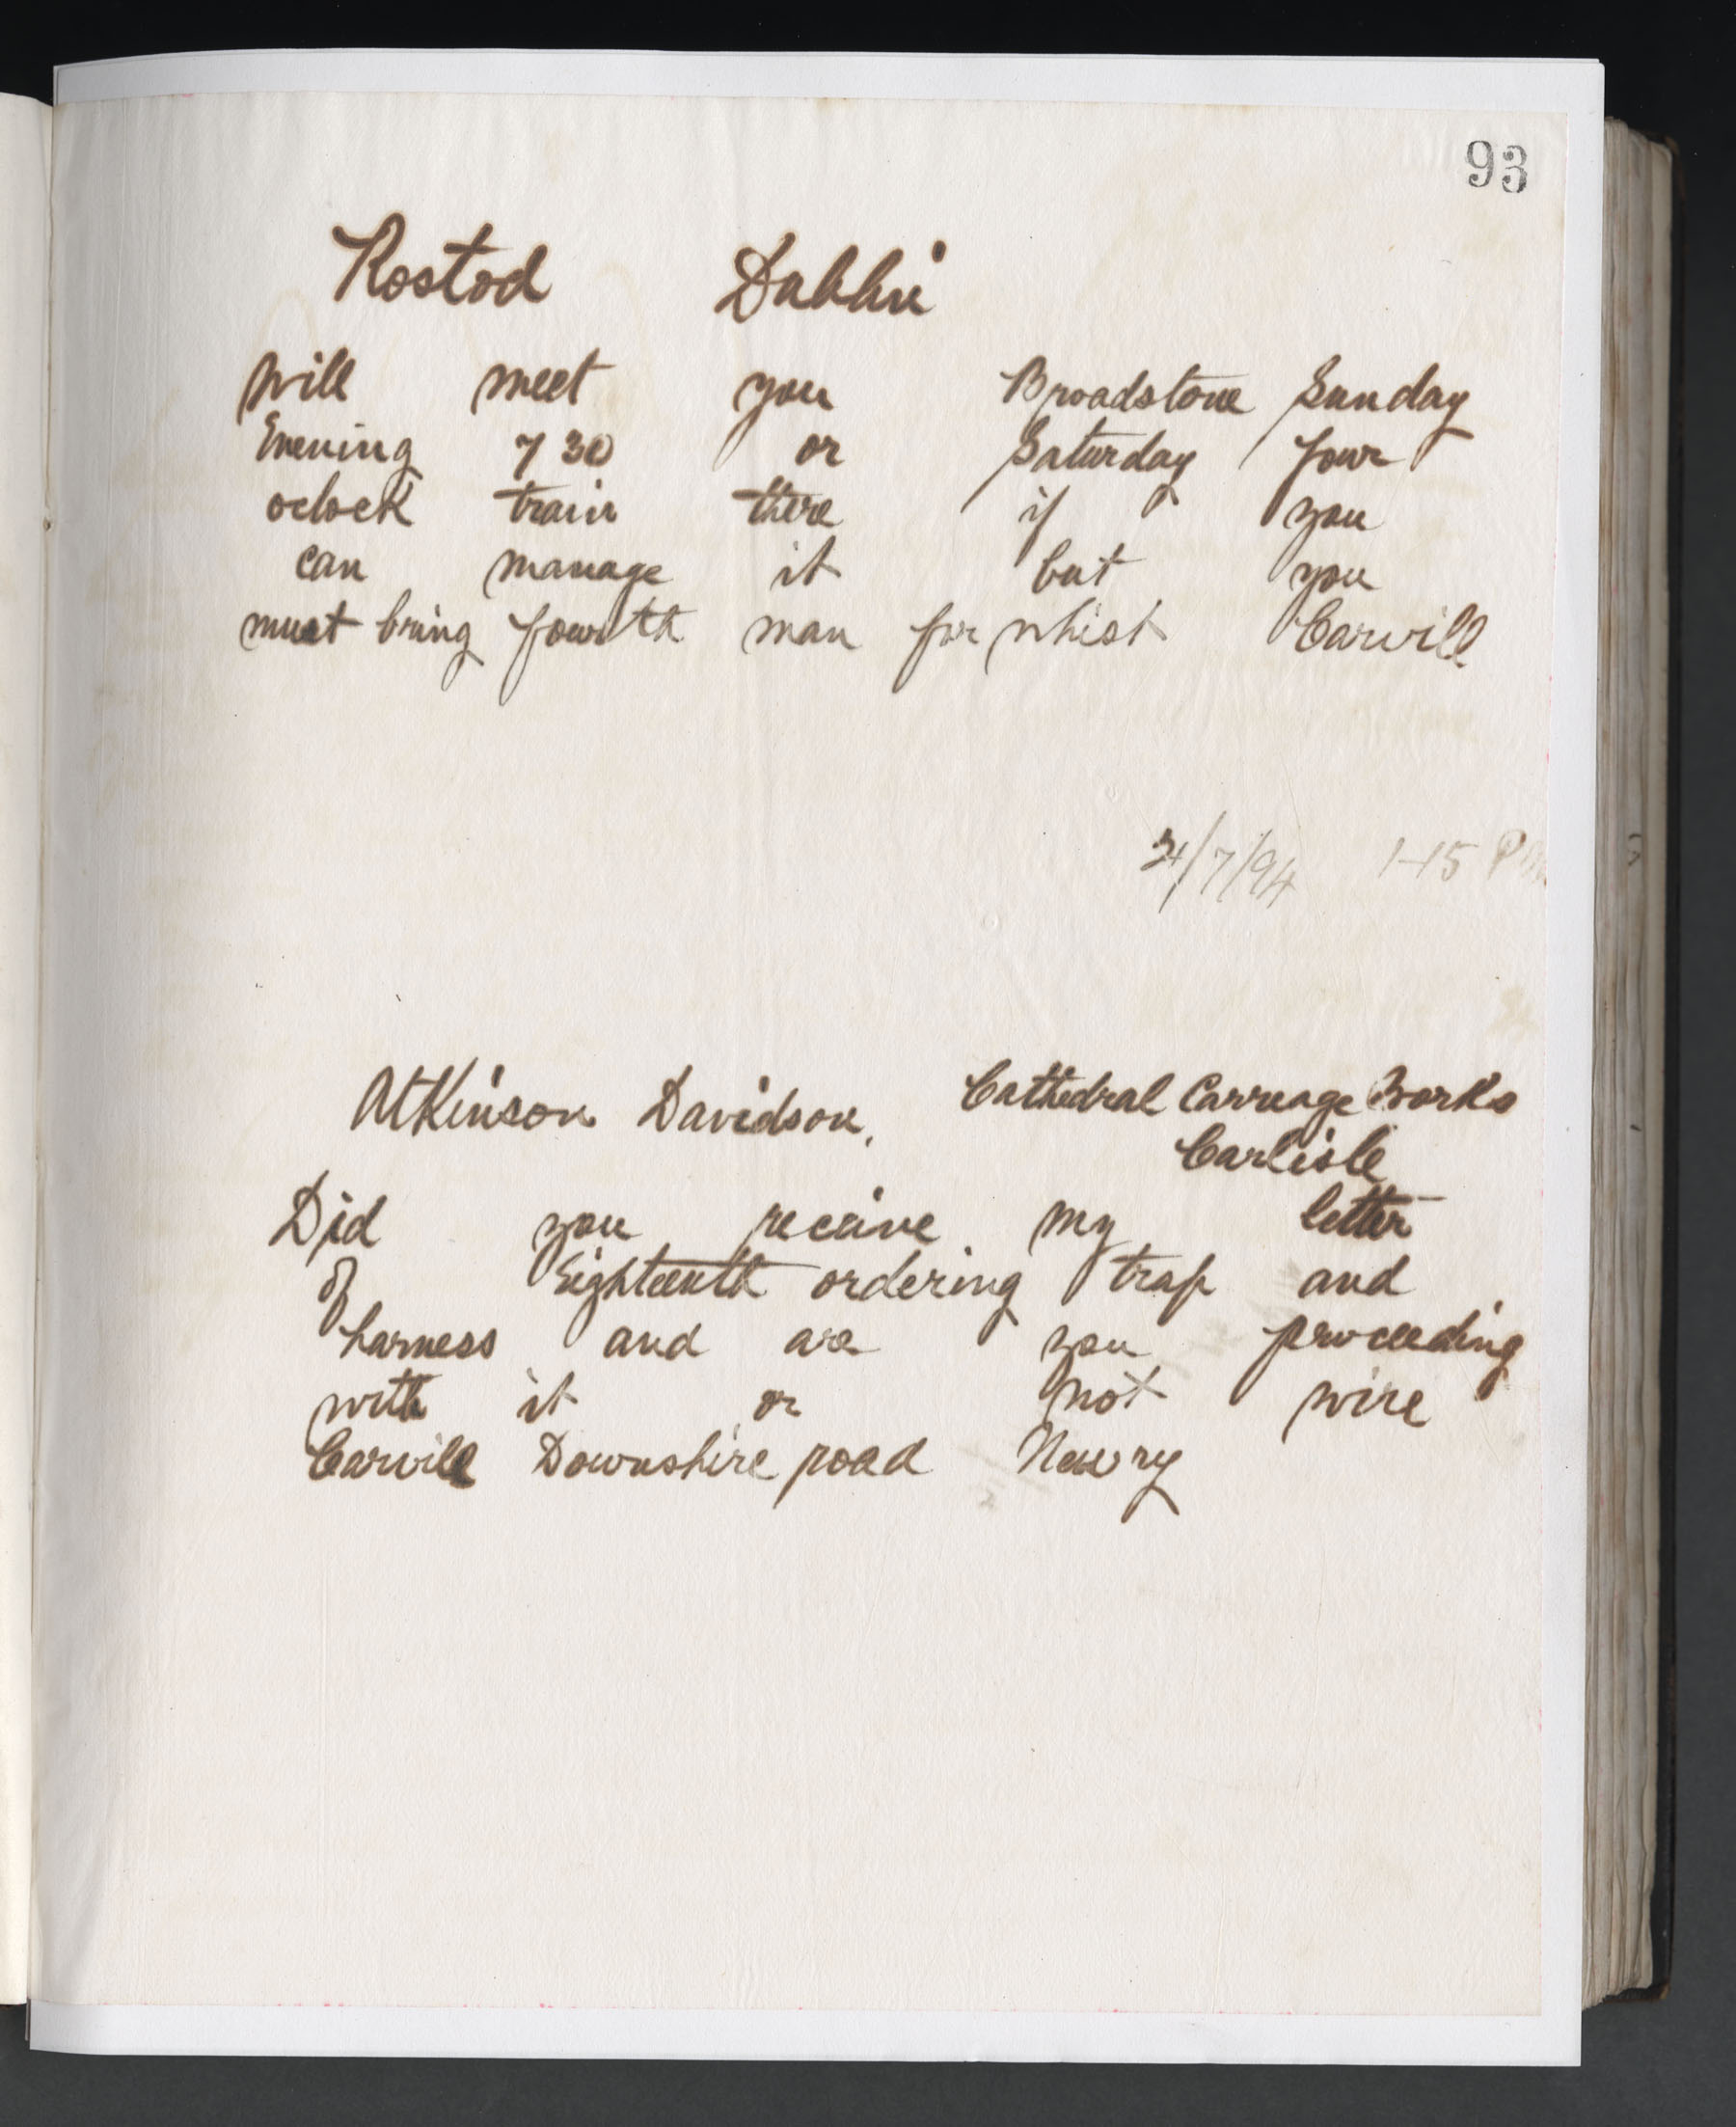 93
Rostod Dublin
Will meet you Broadstone Sunday
Evening 7 30 or Saturday four
oclock train there if you
can manage it but you
must bring fourth man for whist Carvill
/7/94 1-15 PM
Atkinson Davidson, Cathedral Carriage Works
Carlisle
Did you receive my letter
of Eighteenth ordering trap and
harness and are you proceeding
with it or not wire
Carvill Downshire road Newry